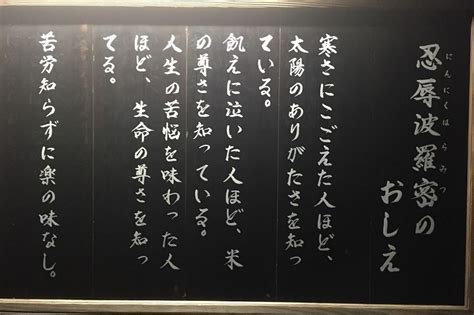 忍辱波羅密の
にんにくはらみつ
おしえ
寒さにこごえた人ほど、
太陽のありがたさを知っ
ている。
飢えに泣いた人ほど、米
の尊さを知っている。
人生の苦悩を味わった人
ほど、生命の尊さを知っ
てる。
苦労知らずに楽の味なし。